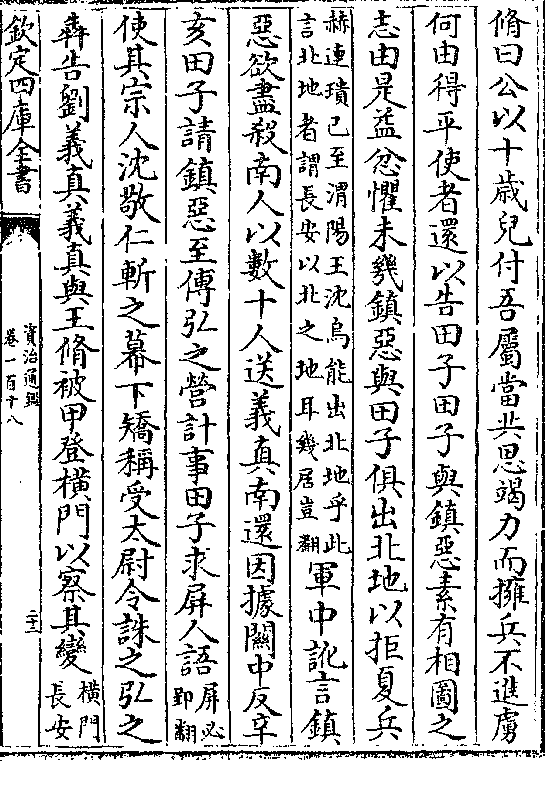 脩曰公以十歲兒付吾屬當共思竭力而擁兵不進虜
何由得平使者還以告田子田子與鎮惡素有相圖之
志由是益忿懼未幾鎮惡與田子俱出北地以拒夏兵
赫連璝已至渭陽王沈烏能出北地乎此
言北地者謂長安以北之地耳幾居豈翻
軍中訛言鎮
惡欲盡殺南人以數十人送義真南還因據關中反辛
亥田子請鎮惡至傅弘之營計事田子求屏人語
屏必
郢翻
使其宗人沈敬仁斬之幕下矯稱受太尉令誅之弘之
犇告劉義真義真與王脩被甲登橫門以察其變
橫門
長安
欽定四庫全書
資治通鑑
卷一百十八
二十三